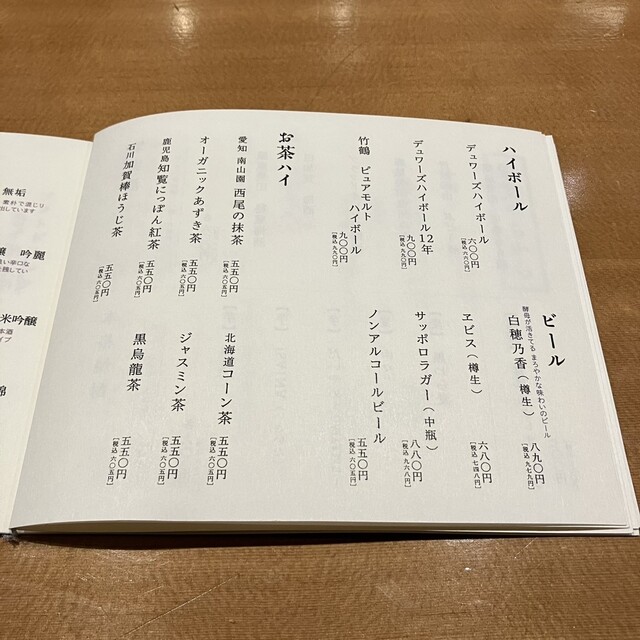 ハイボール
デュワーズハイボール 六〇〇円
［税込 六六〇円］
デュワーズハイボール12年
九〇〇円
［税込 九九〇円］
竹鶴 ピュアモルト
ハイボール
九〇〇円
［税込 九九〇円］
ビール
酵母が活きてる まろやかな味わいのビール
白穂乃香（樽生） 八九〇円
［税込 九七九円］
ヱビス（樽生） 六八〇円
［税込 七四八円］
サッポロラガー（中瓶） 八八〇円
［税込 九六八円］
ノンアルコールビール 五五〇円
［税込 六〇五円］
お茶ハイ
愛知 南山園 西尾の抹茶 五五〇円
［税込 六〇五円］
オーガニックあずき茶 五五〇円
［税込 六〇五円］
鹿児島 知覧にっぽん紅茶 五五〇円
［税込 六〇五円］
石川 加賀棒ほうじ茶 五五〇円
［税込 六〇五円］
北海道コーン茶 五五〇円
［税込 六〇五円］
ジャスミン茶 五五〇円
［税込 六〇五円］
黒烏龍茶 五五〇円
［税込 六〇五円］
無垢
素朴で混じり
出しています
醸 吟麗
良い辛口な
と醸してい
米吟醸
本酒
イプ
錦